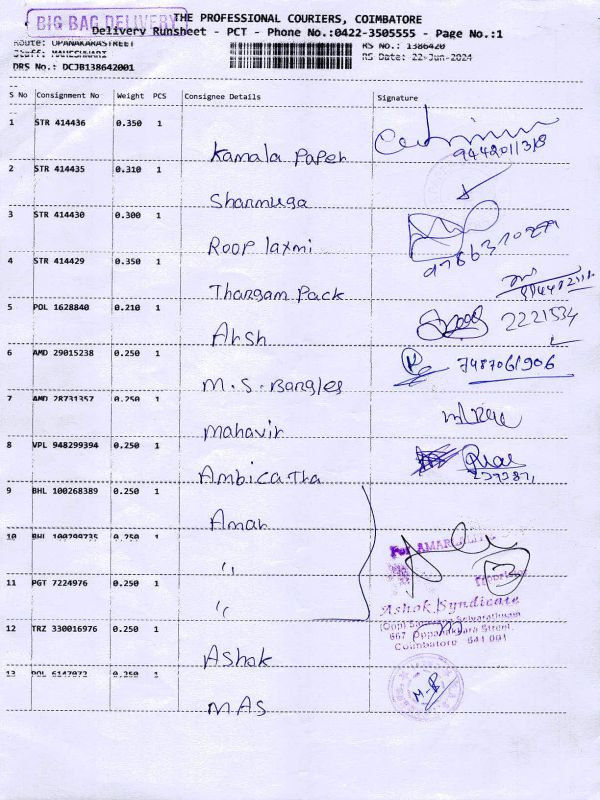 BIG BAG DELIVERY
THE PROFESSIONAL COURIERS, COIMBATORE
Delivery Runsheet - PCT - Phone No.:0422-3505555 - Page No.:1
Route: OPANAKARASTREET RS No.: 1386420
Staff: MAHESHWARI RS Date: 22-Jun-2024
DRS No.: DCJB138642001
S No Consignment No Weight PCS Consignee Details Signature
1 STR 414436 0.350 1 Kamala Paper
2 STR 414435 0.310 1 Shanmuga
3 STR 414430 0.300 1 Roop laxmi
4 STR 414429 0.350 1 Thangam Pack
5 POL 1628840 0.210 1 Ahsh 2221534
6 AMD 29015238 0.250 1 M.S. Bangles 7487061906
7 AMD 28731357 0.250 1 Mahavir
8 VPL 948299394 0.250 1 Ambica Tha
9 BHL 100268389 0.250 1 Amar
10 BHL 100299735 0.250 1 "
11 PGT 7224976 0.250 1 "
For AMAR
Proprietor
Ashok Syndicate
(Opp) Saravana Selvarathnam
667 Oppanakkara Street,
Coimbatore 641 001
12 TRZ 330016976 0.250 1 Ashok
13 POL 6147072 0.250 1 MAS